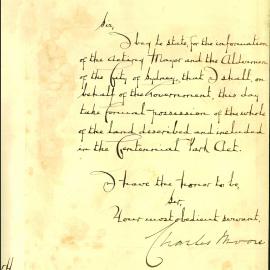 Sir,
I beg to state, for the information
of the Acting Mayor and the Aldermen
of the City of Sydney, that I shall, on
behalf of the Government, this day
take formal possession of the whole
of the Land described and included
in the Centennial Park Act.
I have the honor to be,
Sir,
Your most obedient servant,
Charles Moore